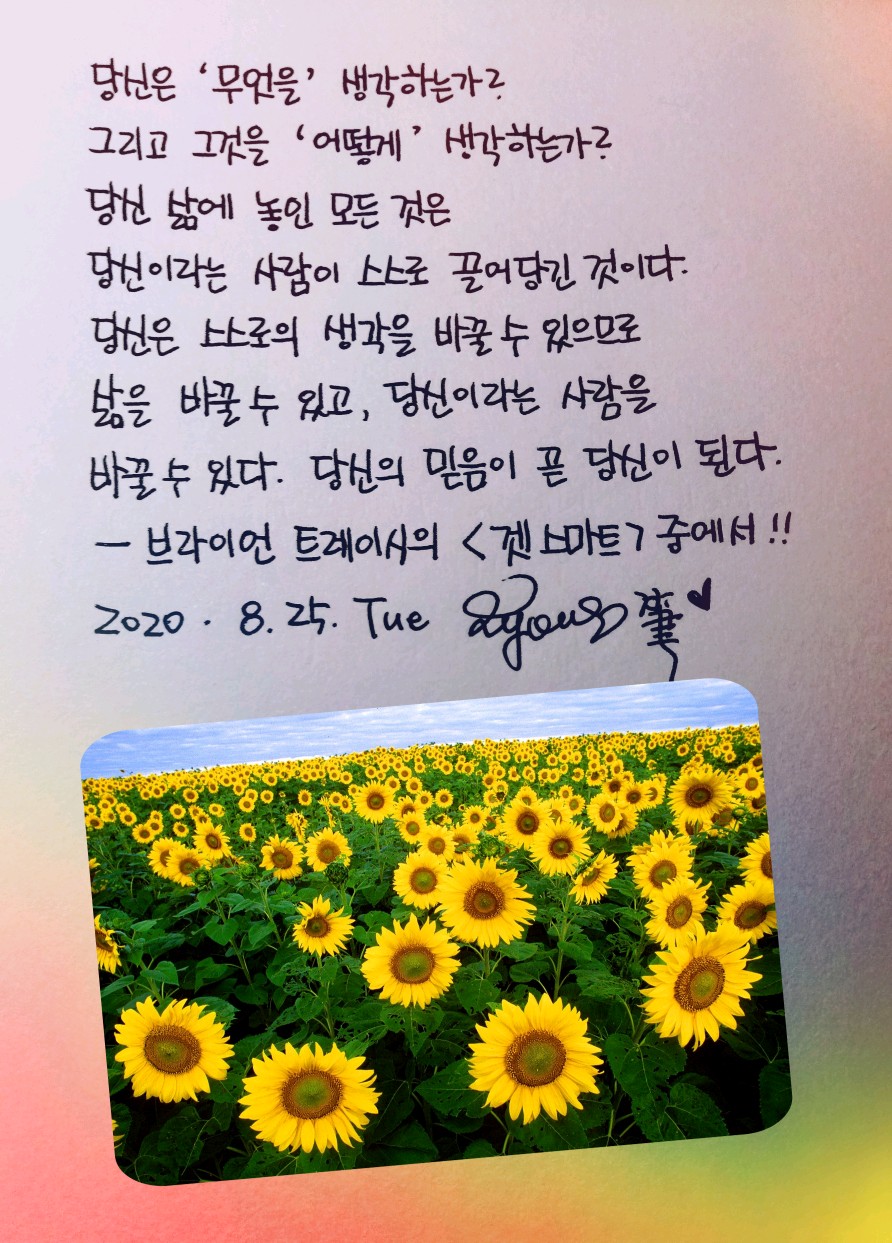 당신은 '무엇을' 생각하는가?
그리고 그것을 '어떻게' 생각하는가?
당신 삶에 놓인 모든 것은
당신이라는 사람이 스스로 끌어당긴 것이다.
당신은 스스로의 생각을 바꿀 수 있으므로
삶을 바꿀 수 있고, 당신이라는 사람을
바꿀 수 있다. 당신의 믿음이 곧 당신이 된다.
- 브라이언 트레이시의 <겟 스마트> 중에서!!
2020. 8. 25. Tue